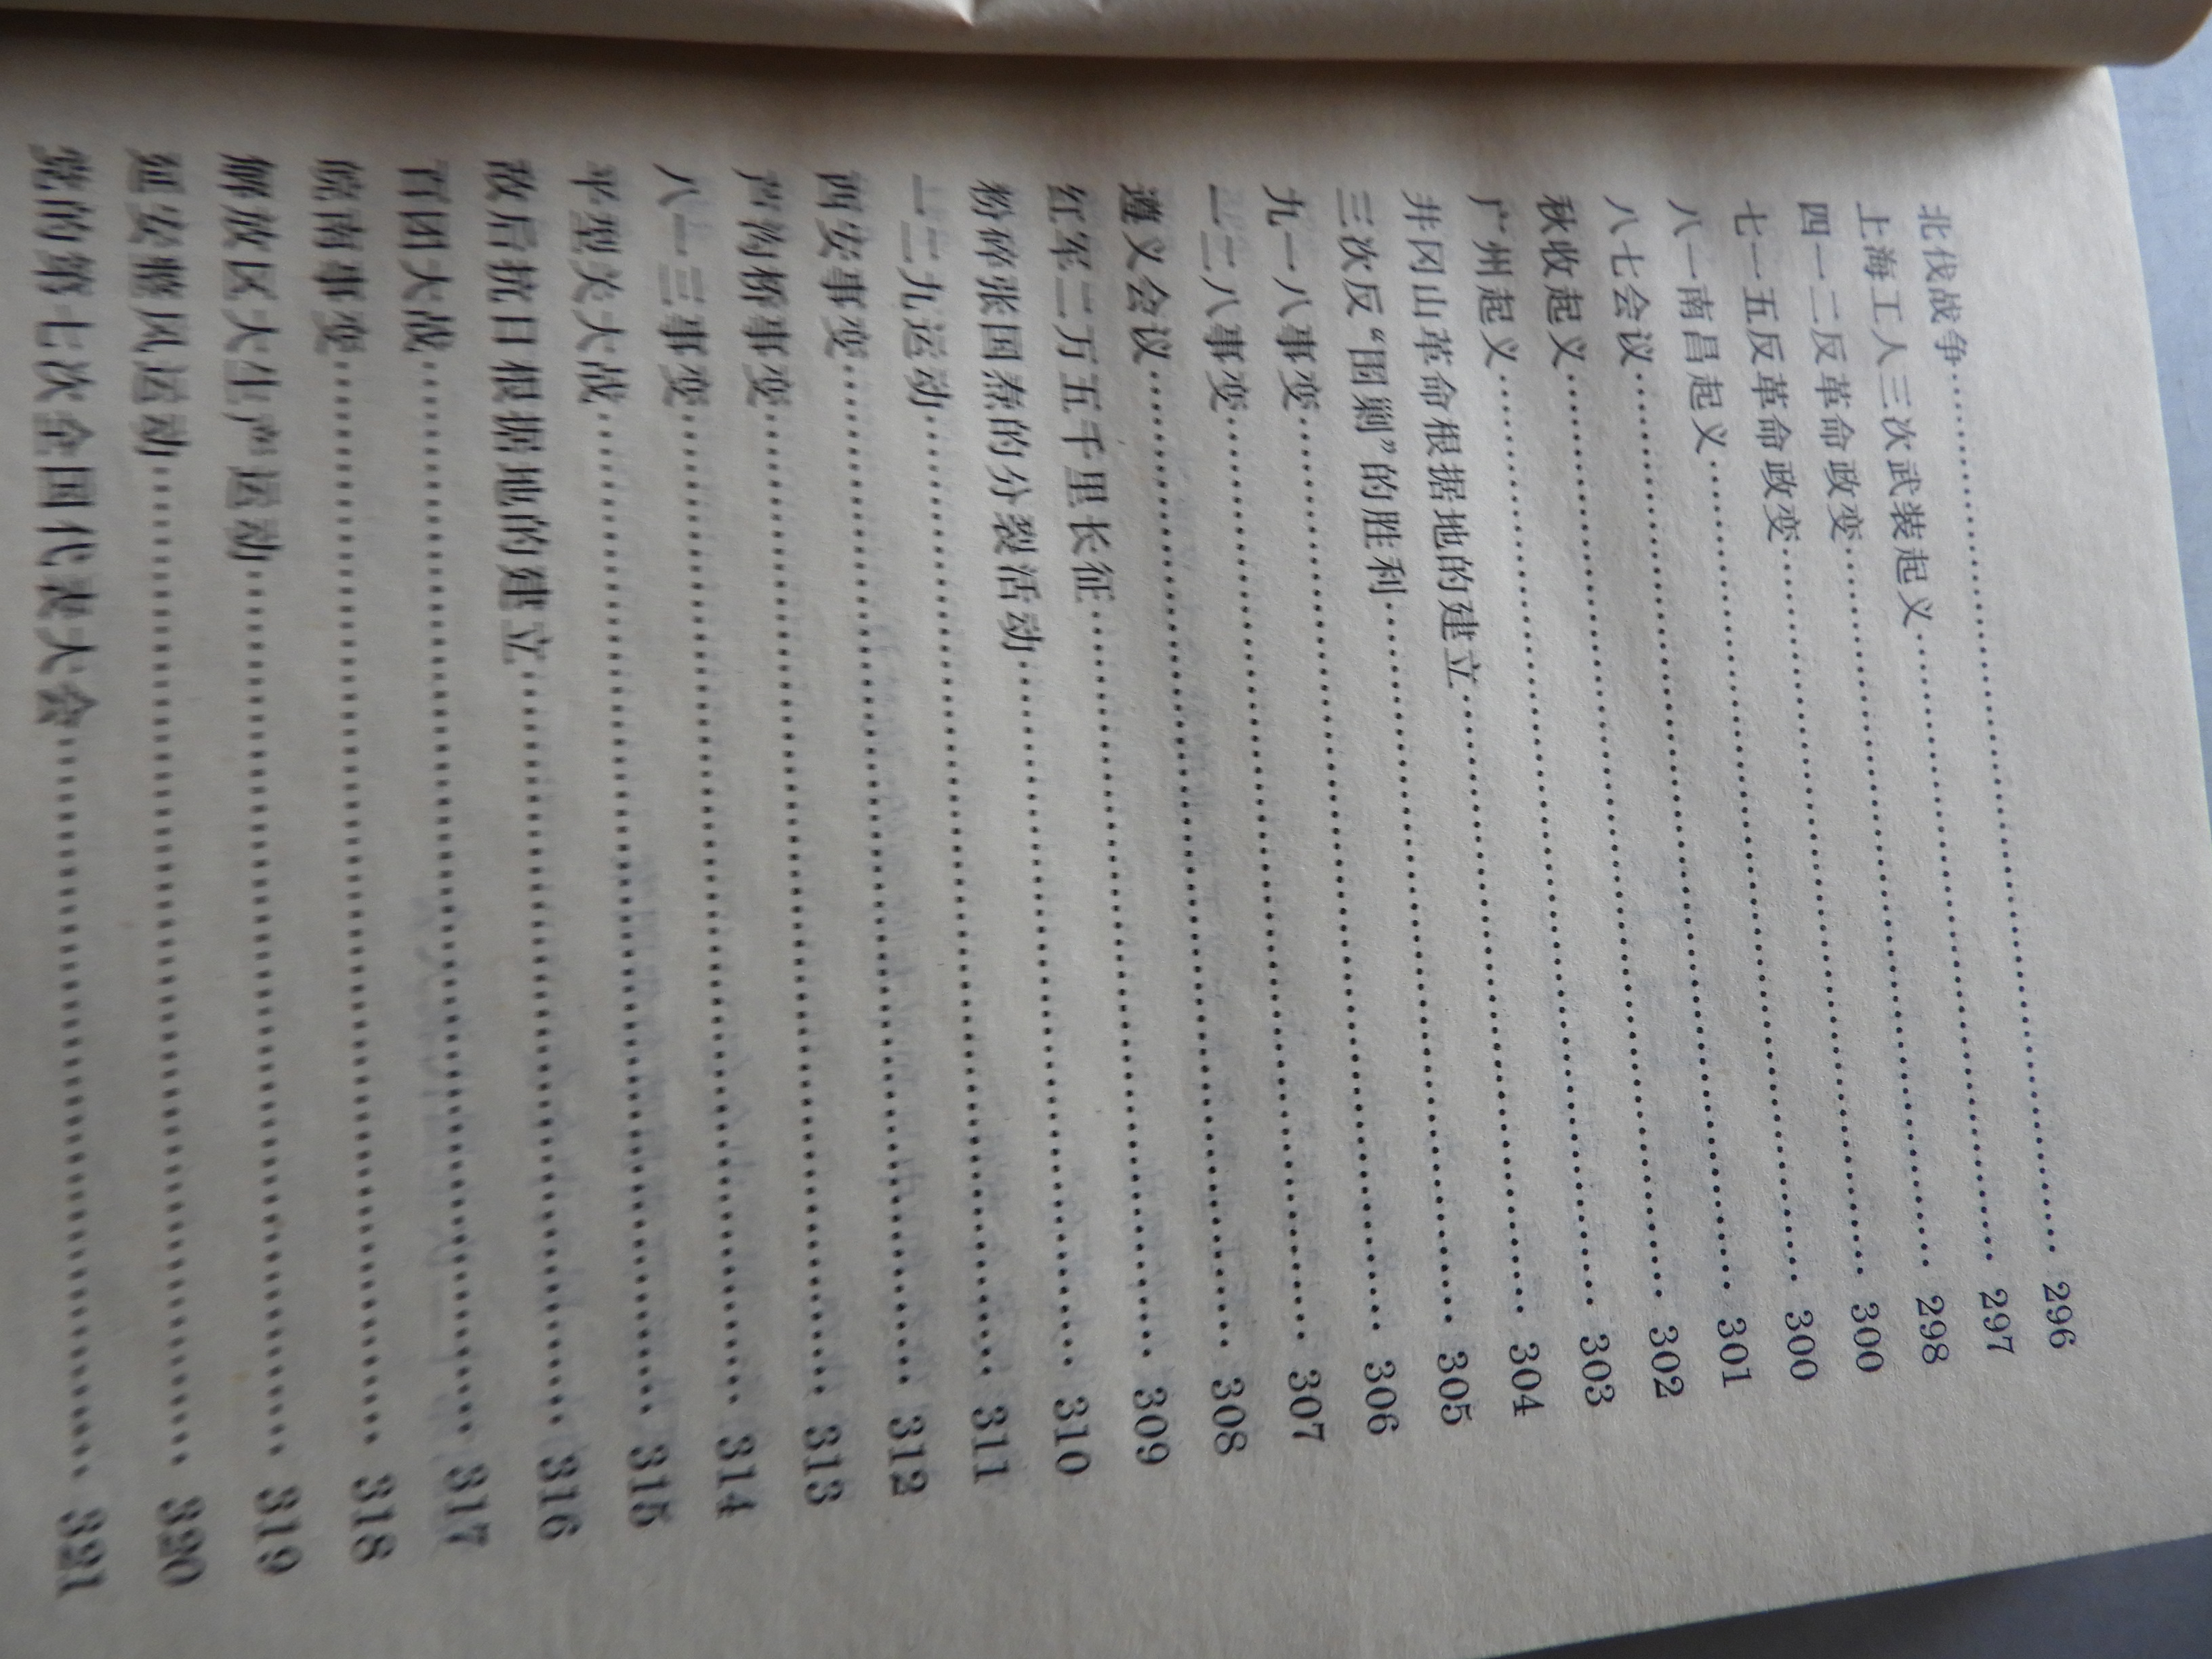 北伐战争…………………………………… 296
上海工人三次武装起义…………………………………… 297
四一二反革命政变…………………………………… 298
七一五反革命政变…………………………………… 300
八一南昌起义…………………………………… 300
八七会议…………………………………… 301
秋收起义…………………………………… 302
广州起义…………………………………… 303
井冈山革命根据地的建立…………………………………… 304
三次反“围剿”的胜利…………………………………… 305
九一八事变…………………………………… 306
一二八事变…………………………………… 307
遵义会议…………………………………… 308
红军二万五千里长征…………………………………… 309
粉碎张国焘的分裂活动…………………………………… 310
一二九运动…………………………………… 311
西安事变…………………………………… 312
芦沟桥事变…………………………………… 313
八一三事变…………………………………… 314
平型关大战…………………………………… 315
敌后抗日根据地的建立…………………………………… 316
百团大战…………………………………… 317
皖南事变…………………………………… 318
解放区大生产运动…………………………………… 319
延安整风运动…………………………………… 320
党的第七次全国代表大会…………………………………… 321